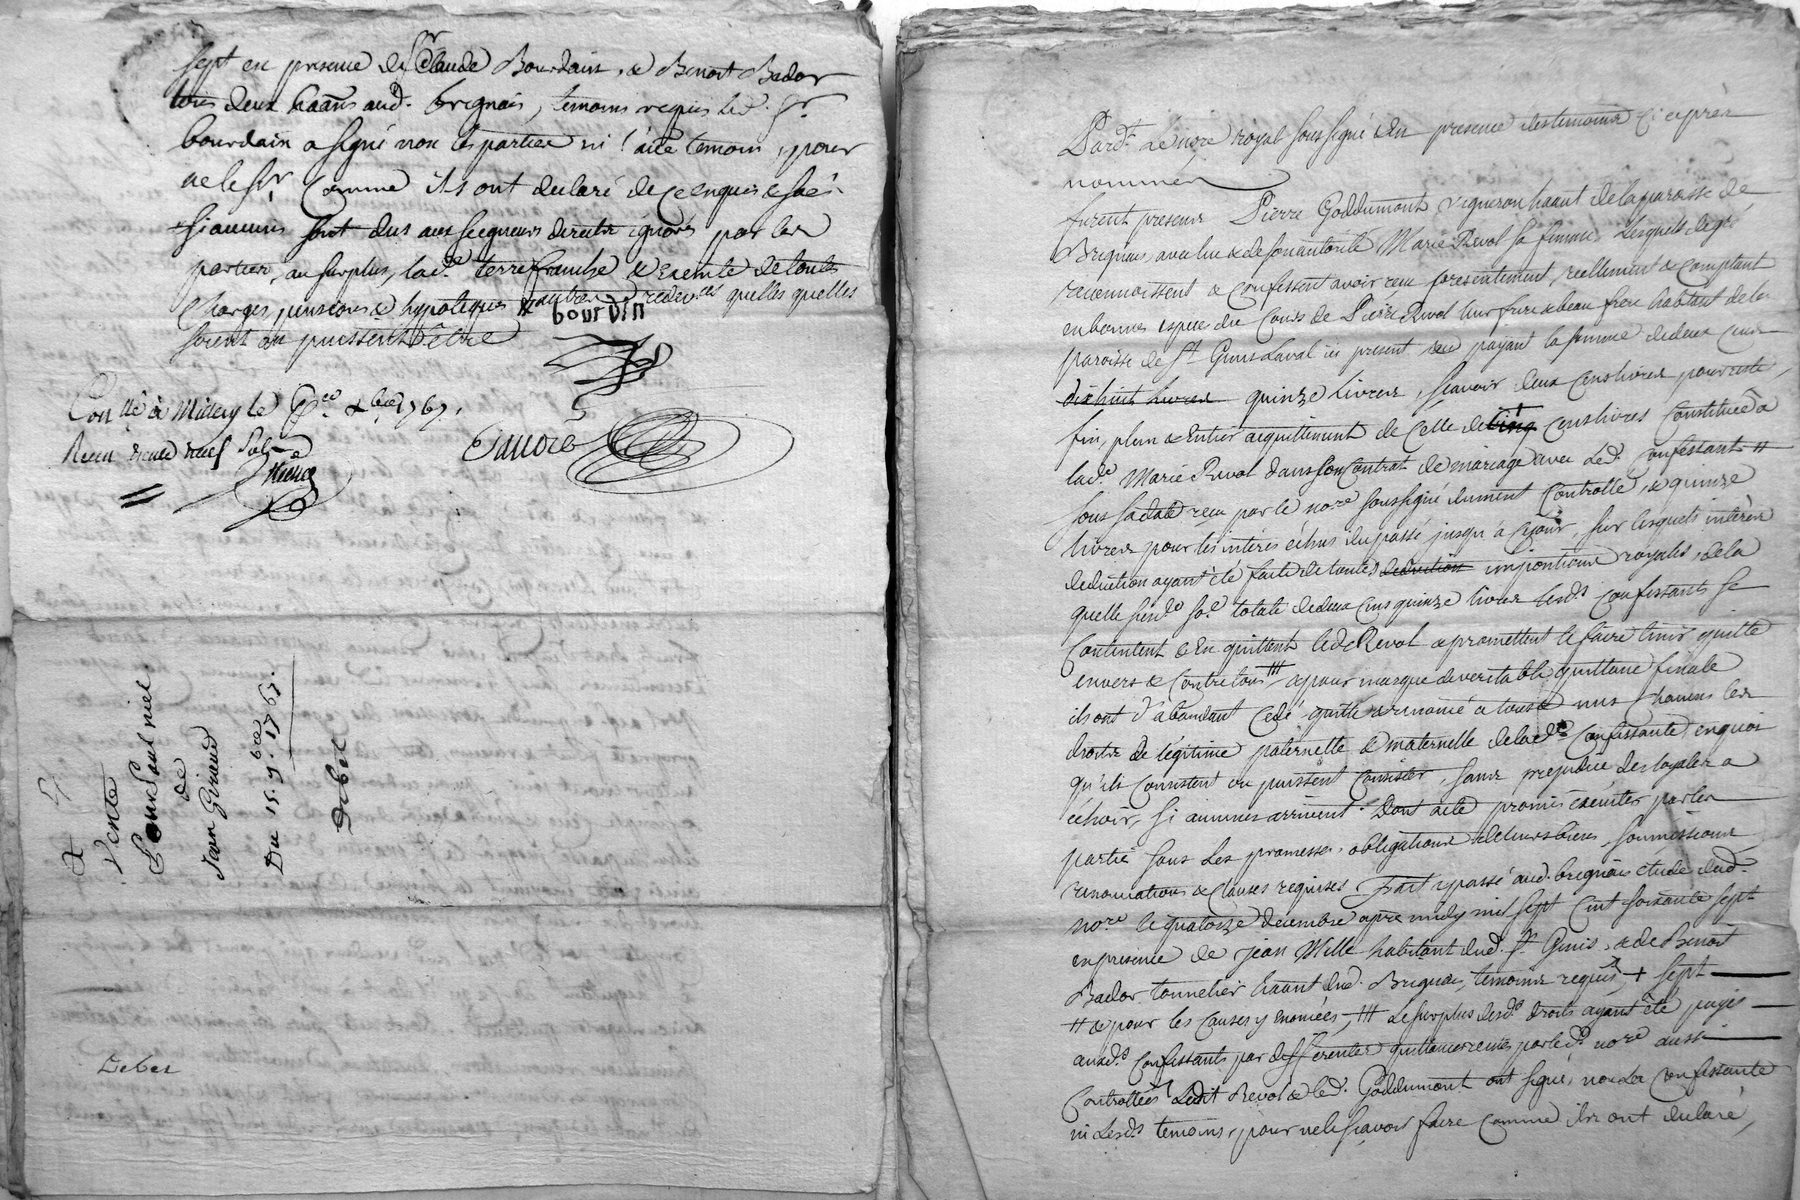 sept en presence de Sr Claude Bourdain, & Benoit Bador
tous deux haans aud. brignais, temoins requis led. Sr
bourdain a signé non les parties ni l'autre temoin, pour
ne le sçr comme ils ont declaré de ce enquis &
si aucuns sont dus aux seigneurs directs ignorés par les
parties, au surplus, lad.e terre franche & exempte de touts
charges, pensions & hypoteques & autres redev.ces quelles quelles
soient ou puissent être
bourdin
Con.llé à Millery le Xbre 1767.
Receu neuf sols
Vente
de
Jean Giraud
Du 15. 9.bre 1767.
Debet
Debet
Pard.t le no.re royal soussigné & en presence des temoins ci après
nommés
furent presens Pierre Goddumont vigneron haant de la paroisse de
Brignais, avec lui & de son autorité Marie Revol sa femme, lesquels de gré
reconnoissent & confessent avoir reçu presentement, reellement & comptant
en bonnes especes du cours de Pierre Revol leur frere & beau frere habitant de la
paroisse de St. Genis Laval ici present & payant la somme de deux cens
dixhuit livres quinze livres, sçavoir deux cens livres pour reste,
fin, plein & entier acquittement de celle de cinq cens livres constituée à
lad.e Marie Revol dans son contrat de mariage avec led. confessant #
sous sa date reçu par le no.re soussigné duement controllé, & quinze
livres pour les intérés échus du passé jusqu'à ce jour, sur lesquels intérés
deduction ayant été faite de toutes deduction impositions royales, de la
quelle sus.de so.e totale de deux cens quinze livres lesd.s confessants se
contentent & en quittent led. Revol & promettent le faire tenir quitte
envers & contre tous ### & pour marque de veritable quittance finale
ils ont d'abondant cedé, quitté & renoncé à tous & uns chacuns les
droits de légitime paternelle & maternelle de lad.e confessante en quoi
qu'ils consistent ou puissent consister, sans prejudice des loyales à
échoir, si aucunes arrivent. Dont acte promis executer par les
parties sous les promesses, obligations de leurs biens, soumissions
renonciations & clauses requises. Fait & passé aud. brignais étude dud.
no.re le quatorze decembre après midy mil sept cent soixante sept
en presence de Jean Mille habitant dud. St. Genis, & de Benoit
Bador tonnelier haant dud. Brignais, temoins requis, + sept
# & pour les causes y enoncées, ### le surplus desd.s droits ayant été payés
auxd.s confessants par differentes quittances reçues par led. no.re aussi
controllées ledit Revol & led. Goddumont ont signé, non la confessante
ni lesd.s temoins, pour ne le sçavoir faire comme ils ont declaré,